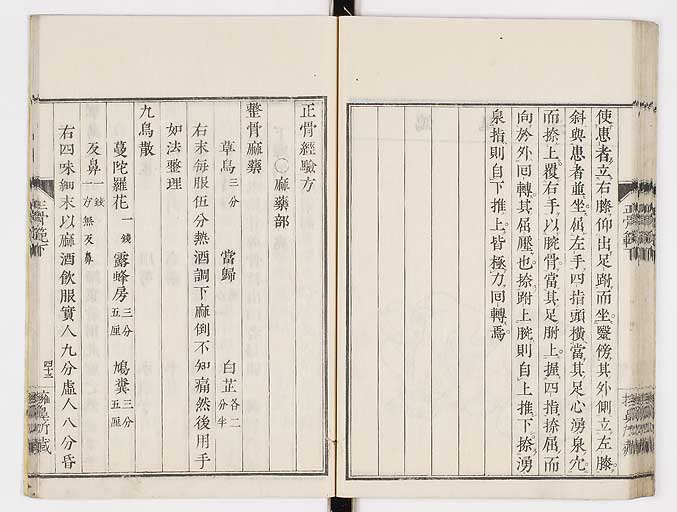 使患者立右膝仰出足跗而坐毉傍其外側立左膝
斜與患者並坐屈左手四指頭橫當其足心湧泉穴
而捺上覆右手以腕骨當其足跗上握四指捺屈而
向於外回轉其屈壓也捺跗上腕則自上推下捺湧
泉指則自下推上皆極力回轉焉
正骨經驗方
〇麻藥部
整骨麻藥
草烏三分 當歸 白芷各二分半
右末每服伍分熱酒調下麻倒不知痛然後用手
如法整理
九烏散
蔓陀羅花一錢 露蜂房三分五厘 鳩糞三分五厘
反鼻一錢一方無反鼻
右四味細末以麻酒飲服實人九分虛人八分昏
正骨範下
四十三